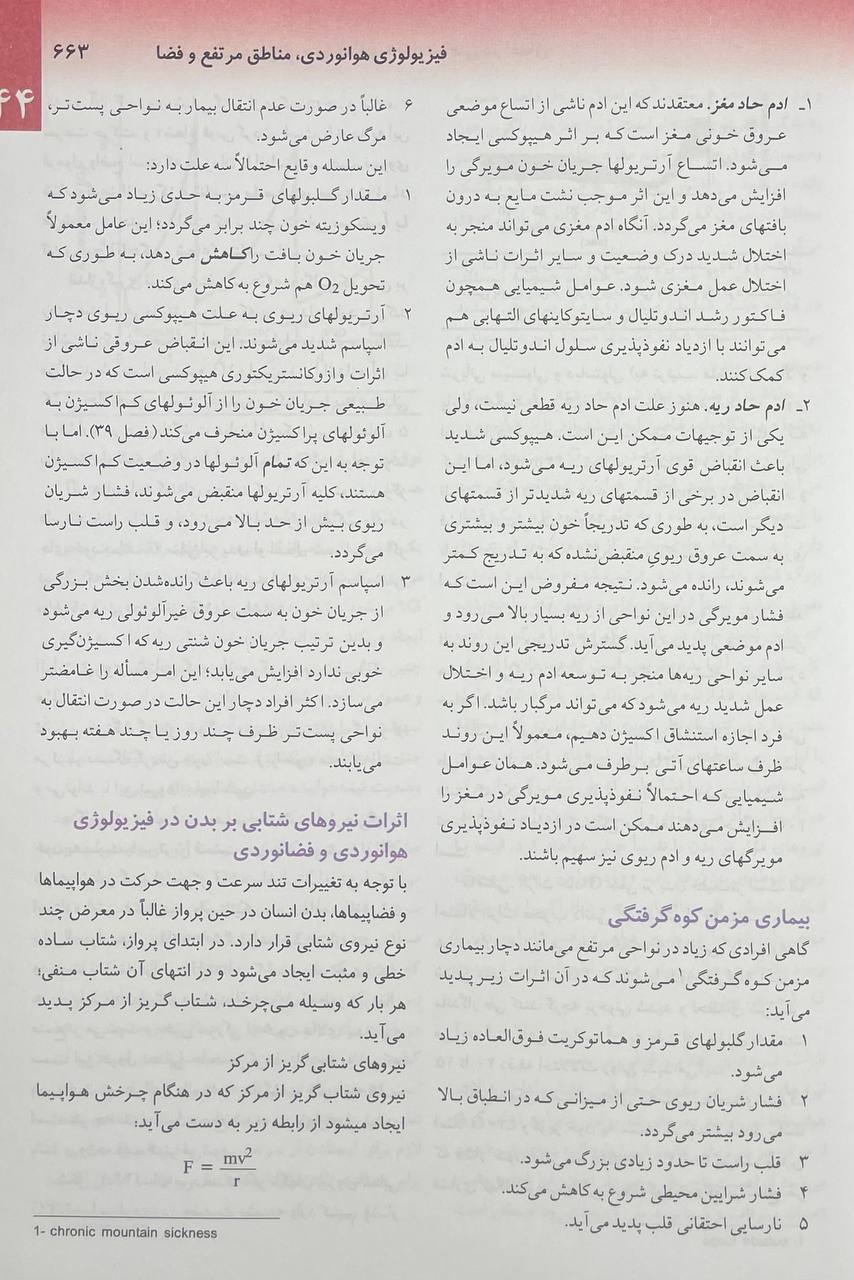 فیزیولوژی هوانوردی، مناطق مرتفع و فضا ۶۶۳
۴۴
۱ـ ادم حاد مغز. معتقدند که این ادم ناشی از اتساع موضعی
عروق خونی مغز است که بر اثر هیپوکسی ایجاد
می‌شود. اتساع آرتریولها جریان خون مویرگی را
افزایش می‌دهد و این اثر موجب نشت مایع به درون
بافتهای مغز می‌گردد. آنگاه ادم مغزی می‌تواند منجر به
اختلال شدید درک وضعیت و سایر اثرات ناشی از
اختلال عمل مغزی شود. عوامل شیمیایی همچون
فاکتور رشد اندوتلیال و سایتوکاینهای التهابی هم
می‌توانند با ازدیاد نفوذپذیری سلول اندوتلیال به ادم
کمک کنند.
۲ـ ادم حاد ریه. هنوز علت ادم حاد ریه قطعی نیست، ولی
یکی از توجیهات ممکن این است. هیپوکسی شدید
باعث انقباض قوی آرتریولهای ریه می‌شود، اما این
انقباض در برخی از قسمتهای ریه شدیدتر از قسمتهای
دیگر است، به طوری که تدریجاً خون بیشتر و بیشتری
به سمت عروق ریویِ منقبض‌نشده که به تدریج کمتر
می‌شوند، رانده می‌شود. نتیجه مفروض این است که
فشار مویرگی در این نواحی از ریه بسیار بالا می‌رود و
ادم موضعی پدید می‌آید. گسترش تدریجی این روند به
سایر نواحی ریه‌ها منجر به توسعه ادم ریه و اختلال
عمل شدید ریه می‌شود که می‌تواند مرگبار باشد. اگر به
فرد اجازه استنشاق اکسیژن دهیم، معمولاً این روند
ظرف ساعتهای آتی برطرف می‌شود. همان عوامل
شیمیایی که احتمالاً نفوذپذیری مویرگی در مغز را
افزایش می‌دهند ممکن است در ازدیاد نفوذپذیری
مویرگهای ریه و ادم ریوی نیز سهیم باشند.
بیماری مزمن کوه گرفتگی
گاهی افرادی که زیاد در نواحی مرتفع می‌مانند دچار بیماری
مزمن کوه گرفتگی۱ می‌شوند که در آن اثرات زیر پدید
می‌آید:
۱ مقدار گلبولهای قرمز و هماتوکریت فوق‌العاده زیاد
می‌شود.
۲ فشار شریان ریوی حتی از میزانی که در انطباق بالا
می‌رود بیشتر می‌گردد.
۳ قلب راست تا حدود زیادی بزرگ می‌شود.
۴ فشار شرایین محیطی شروع به کاهش می‌کند.
۵ نارسایی احتقانی قلب پدید می‌آید.
۶ غالباً در صورت عدم انتقال بیمار به نواحی پست‌تر،
مرگ عارض می‌شود.
این سلسله وقایع احتمالاً سه علت دارد:
۱ مقدار گلبولهای قرمز به حدی زیاد می‌شود که
ویسکوزیته خون چند برابر می‌گردد؛ این عامل معمولاً
جریان خون بافت را کاهش می‌دهد، به طوری که
تحویل O2 هم شروع به کاهش می‌کند.
۲ آرتریولهای ریوی به علت هیپوکسی ریوی دچار
اسپاسم شدید می‌شوند. این انقباض عروقی ناشی از
اثرات وازوکانستریکتوری هیپوکسی است که در حالت
طبیعی جریان خون را از آلوئولهای کم‌اکسیژن به
آلوئولهای پراکسیژن منحرف می‌کند (فصل ۳۹). اما با
توجه به این که تمام آلوئولها در وضعیت کم‌اکسیژن
هستند، کلیه آرتریولها منقبض می‌شوند، فشار شریان
ریوی بیش از حد بالا می‌رود، و قلب راست نارسا
می‌گردد.
۳ اسپاسم آرتریولهای ریه باعث رانده‌شدن بخش بزرگی
از جریان خون به سمت عروق غیرآلوئولی ریه می‌شود
و بدین ترتیب جریان خون شنتی ریه که اکسیژن‌گیری
خوبی ندارد افزایش می‌یابد؛ این امر مسأله را غامضتر
می‌سازد. اکثر افراد دچار این حالت در صورت انتقال به
نواحی پست‌تر ظرف چند روز یا چند هفته بهبود
می‌یابند.
اثرات نیروهای شتابی بر بدن در فیزیولوژی
هوانوردی و فضانوردی
با توجه به تغییرات تند سرعت و جهت حرکت در هواپیماها
و فضاپیماها، بدن انسان در حین پرواز غالباً در معرض چند
نوع نیروی شتابی قرار دارد. در ابتدای پرواز، شتاب ساده
خطی و مثبت ایجاد می‌شود و در انتهای آن شتاب منفی؛
هر بار که وسیله می‌چرخد، شتاب گریز از مرکز پدید
می‌آید.
نیروهای شتابی گریز از مرکز
نیروی شتاب گریز از مرکز که در هنگام چرخش هواپیما
ایجاد میشود از رابطه زیر به دست می‌آید:
F = mv²/r
1- chronic mountain sickness